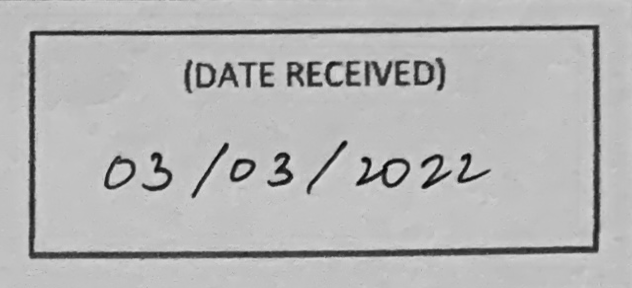 (DATE RECEIVED)
03/03/2022